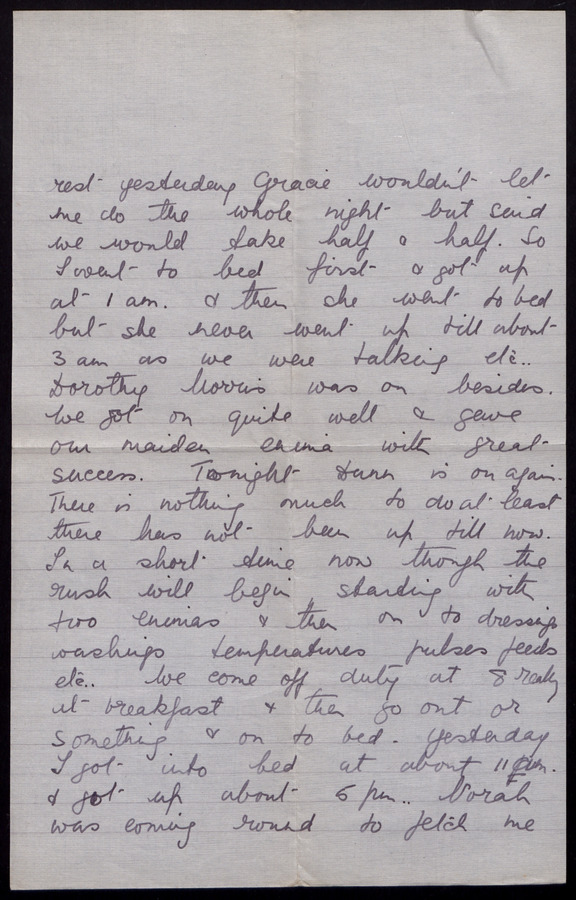 rest yesterday Gracie wouldn't let
me do the whole night but said
we would take half & half. So
I went to bed first & got up
at 1 am. & then she went to bed
but she never went up till about
3 am as we were talking etc..
Dorothy Morris was on besides.
We got on quite well & gave
our maiden enema with great
success. Tonight Dunn is on again.
There is nothing much to do at least
there has not been up till now.
In a short time now though the
rush will begin starting with
two enemas & then on to dressings
washings temperatures pulses feeds
etc.. We come off duty at 8 really
at breakfast & then go out or
something & on to bed. Yesterday
I got into bed at about 11 am.
& got up about 5 pm.. Norah
was coming round to fetch me